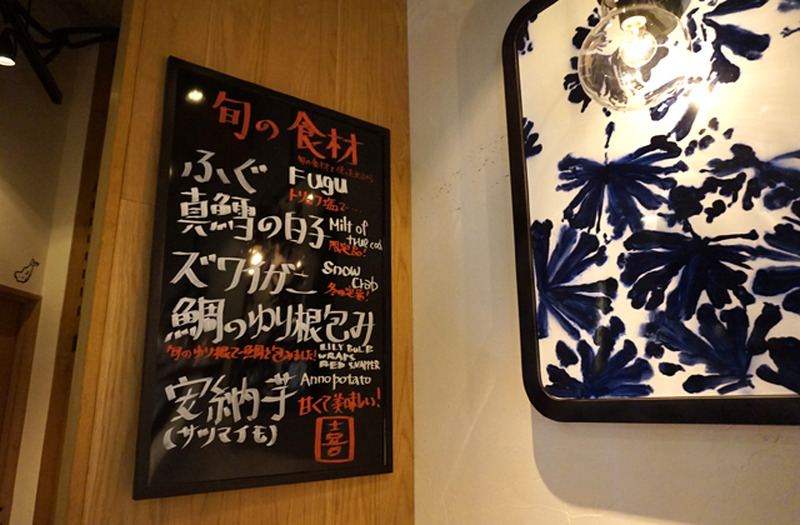 旬の食材
ふぐ Fugu
トリュフ塩で……
真鱈の白子 Milt of true cod
限定品!
ズワイガニ Snow Crab
冬の定番!
鯛のゆり根包み
旬のゆり根で鯛を包みました! LILY BULB WRAPS RED SNAPPER
安納芋 Anno potato
(サツマイモ) 甘くて美味しい!
喜